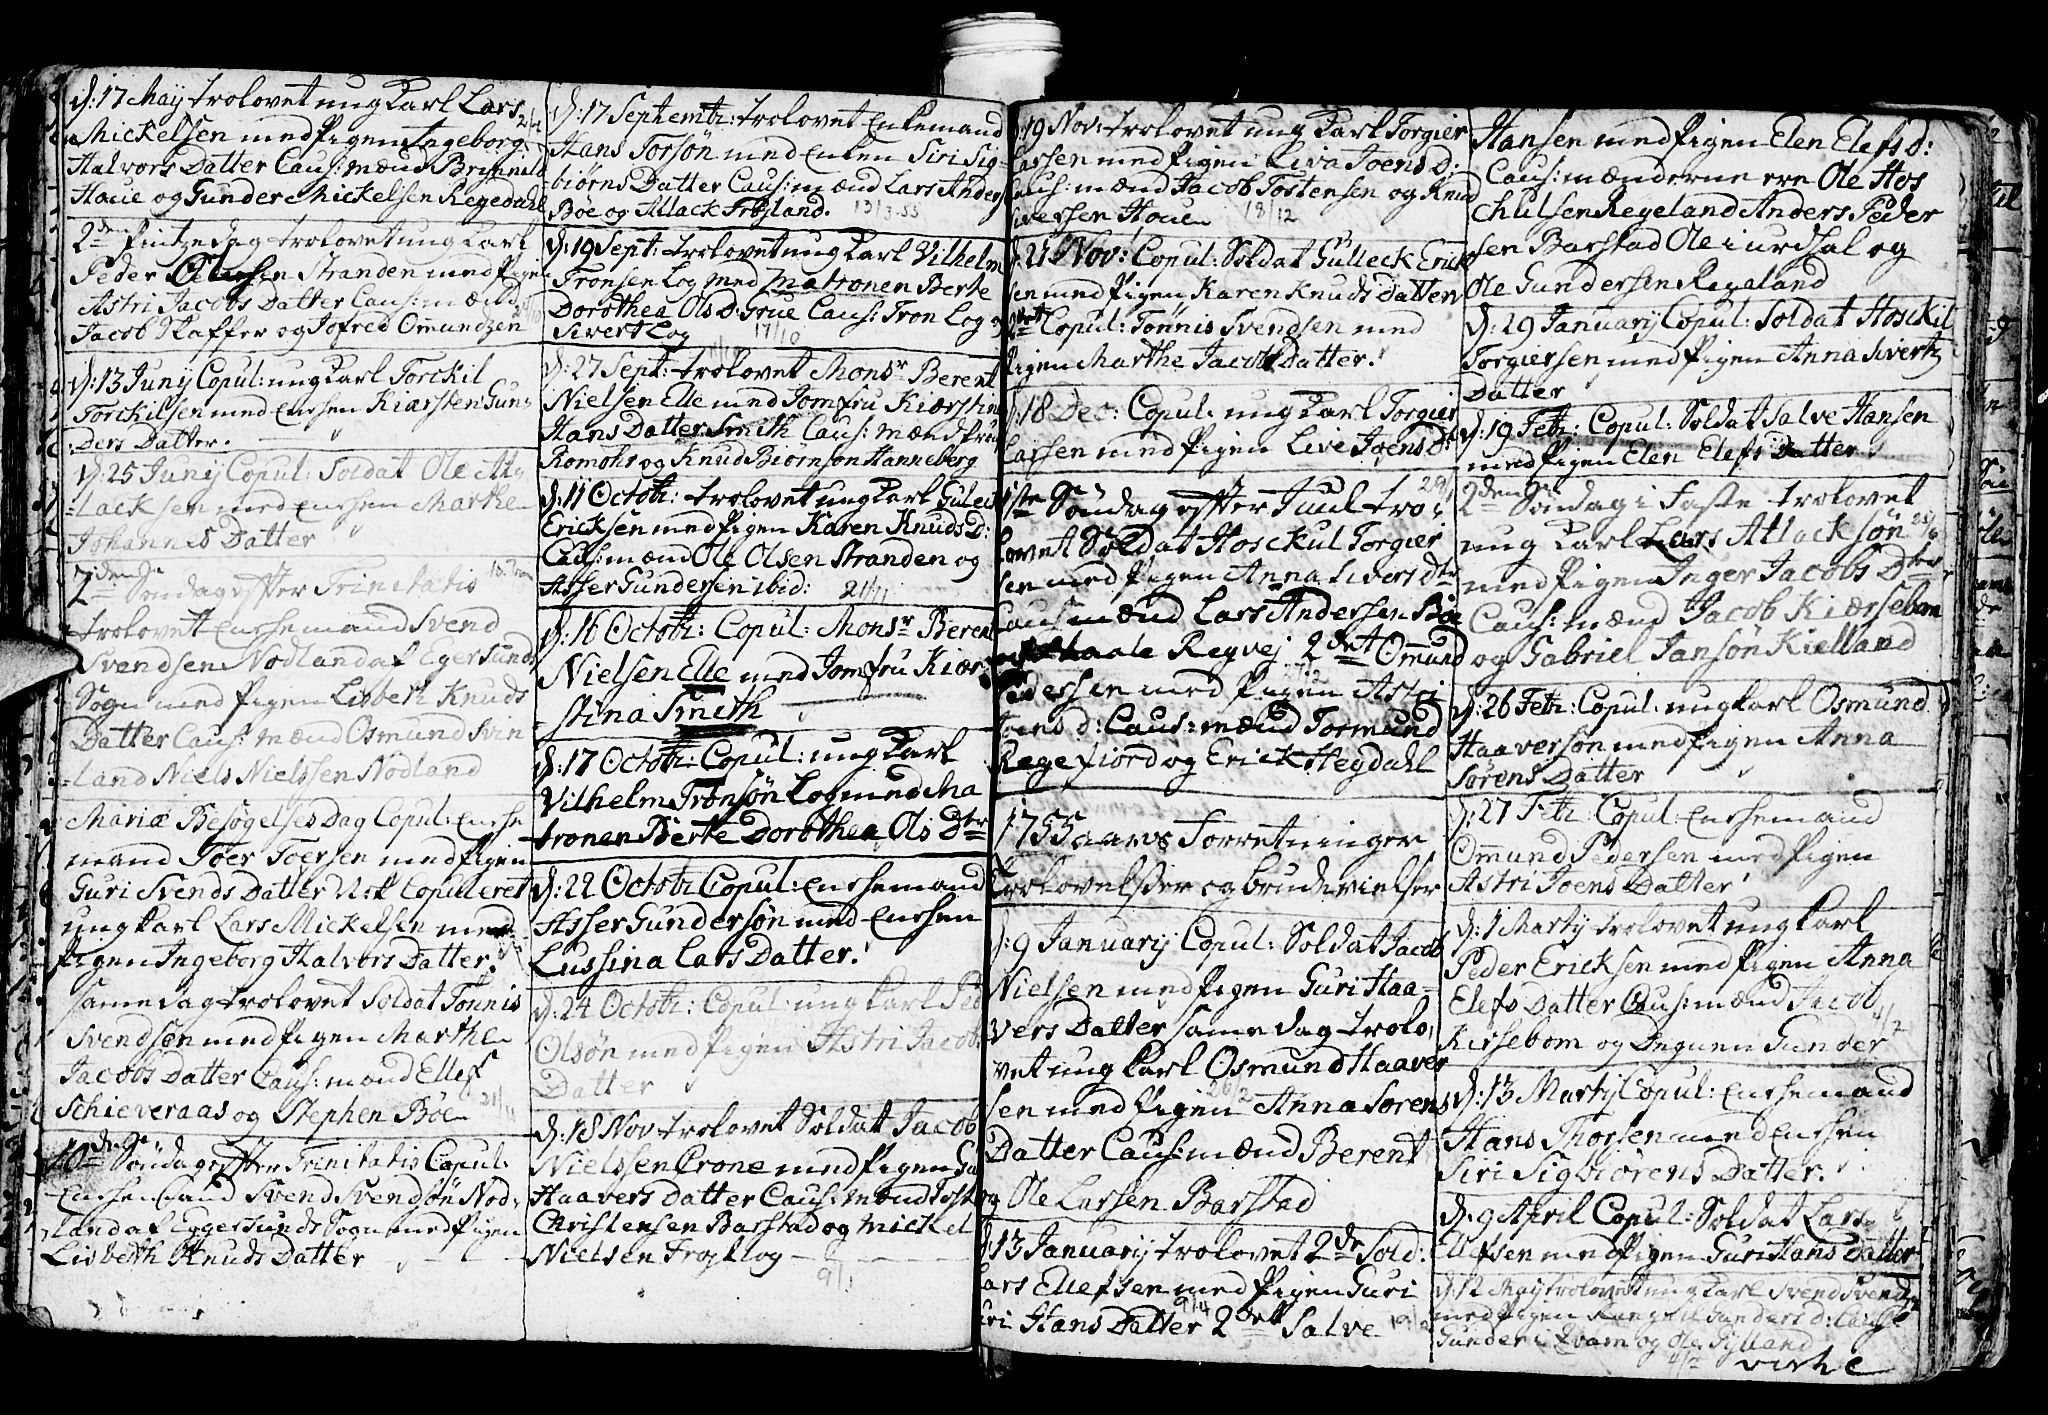 d: 17 Maij trolovet ung Karl Lars
Mickelsen med Pigen Ingeborg
Halvors Datter Caus: mænd Brynild
Houe og Gunder Mickelsen Regedahl
2den Pintze dag trolovet ung Karl
Peder Olersen Stranden med Pigen
Astri Jacobs Datter Caus: mænd
Jacob Skaffer og Jofred Omundzen
d: 13 Junij Copul: ung Karl Torckil
Torckilsen med Encken Kiærsten Gun-
ders Datter.
d: 25 Junij Copul: Soldat Ole Att-
lacksen med Encken Marthe
Johannes Datter
2den Søndag effter Trinitatis
trolovet Enckemand Svend
Svendsen Nodland af Egersunds
Sogn med Pigen Lisbeth Knuds
Datter Caus: mænd Osmund Svin
land Niels Nielssen Nodland
Mariæ Besøgelses Dag Copul: Encke
mand Toer Toersen med Pigen
Guri Svends Datter Nok Copuleret
ung Karl Lars Mickelsen med
Pigen Ingeborg Halvors Datter.
same dag trolovet Soldat Tønnis
Svendsen med Pigen Marthe
Jacobs Datter Caus: mænd Ellef
Schieveraas og Stephen Bøe 21/11
10de Søndag effter Trinitatis Copul:
Enckemand Svend Svendsøn Nod-
land af Eggersunds Sogn med Pigen
Lisbeth Knuds Datter
d: 17 Septembr: trolovet Enkemand
Hans Torsøn med Enken Siri Sig-
biørns Datter Caus: mænd Lars Anders
Bøe og Atlack Frøsland. 13/3 55
d: 19 Sept: trolovet ung Karl Vilhelm
Tronsen Log med Matronen Berte
Dorothea Ols D: Grue Caus: Tron Log og
Sivert Log 17/10
d: 27 Sept: trolovet Monsr Berent
Nielsen Elle med Jomfru Kiærstin
Hans Datter Smith Caus: mænd
Romohr og Knud Biørnson Hanneberg
d: 11 Octobr: trolovet ung Karl Guleck
Ericksen med Pigen Karen Knuds D:
Caus: mænd Ole Olsen Stranden og
Asser Gundersen ibid: 21/11
d: 16 Octobr: Copul: Monsr Berent
Nielsen Elle med Jomfru Kiær-
stina Smith
d: 17 Octobr: Copul: ung Karl
Vilhelm Tronsøn Log med Ma
tronen Berte Dorothea Ols Dtr
d: 22 Octobr Copul: Enckemand
Asser Gundersøn med Encken
Lussina Lars Datter.
d: 24 Octobr: Copul: ung Karl Ped
Olsøn med Pigen Astri Jacobs
Datter
d: 18 Nov trolovet Soldat Jacob
Nielssen Crone med Pigen Gu
Haavers Datter Caus: mænd Tosten
Christensen Barstad og Mickel
Nielsen Frøstlog
9/1
d: 19 Nov: trolovet ung Karl Torgier
Larssen med Pigen Liva Joens D:
Caus: mænd Jacob Tostensen og Knud
Siversen Houen 18/12
d: 21 Nov: Copul: Soldat Gulleck Erick
sen med Pigen Karen Knuds Datter
2det Copul: Tønnis Svendsen med
Pigen Marthe Jacobs Datter.
d: 18 Dec: Copul: ung Karl Torgier
Larssen med Pigen Live Joens D:
1ste Søndag effter Juul tro- 29/1
lovet Soldat Hosckul Torgier
sen med Pigen Anna Sivers dtr
Caus mænd Lars Andersen Bøe
og Haale Regvej 2det Omund
Pedersen med Pigen Astri
Joens d: Caus: mænd Tormund
Rege fiord og Erick Hegdahl
1755 aars Forretninger
Trolovelser og brudevielser
d: 9 Januarij Copul: Soldat Jacob
Nielsen med Pigen Guri Haa-
vers Datter same dag trolo-
vet ung Karl Osmund Haaver
sen med Pigen Anna Sorens
26/2
Datter Caus: mænd Berent
og Ole Larsen Barstad
d: 13 Januarij trolovet 2de Sold:
Lars Ellefsen med Pigen Guri
9/4
Hans Datter 2det Salve
Hansen med Pigen Elen Elefs D:
Caus: mænderne ere Ole Hos
chulsen Regeland Anders Peder
sen Barstad Ole i urdsal og
Ole Gundersen Regaland
d: 29 Januarij Copul: Soldat Hosckil
Torgiersen med Pigen Anna Sivertz
Datter
d: 19 Febr: Copul: Soldat Salve Hansen
med Pigen Elen Elefs Datter
2den Søndag i Faste trolovet
ung Karl Lars Atlacksøn
med Pigen Inger Jacobs Dtter
Caus: mænd Jacob Kiersebom
og Gabriel Jansøn Kielland
d: 26 Febr: Copul: ung Karl Osmund
Haaversøn med Pigen Anna
Sørens Datter
d: 27 Febr: Copul: Enckemand
Omund Pedersen med Pigen
Astri Joens Datter
d: 1 Martij trolovet ung Karl
Peder Ericksen med Pigen Anna
Elefs Datter Caus: mænd Jacob
Kirsebom og Degnen Gunder
d: 13 Martij Copul: Enckemand
Hans Thorsen med Encken
Siri Sigbiørens Datter.
d: 9 April Copul: Soldat Lars
Ellefsen med Pigen Guri Hans Datter
d: 12 Maij trolovet ung Karl Svend Svend
med Pigen Rangnil Gunders d: Caus:
Gunder i Qvam og Ole Sylland
virke